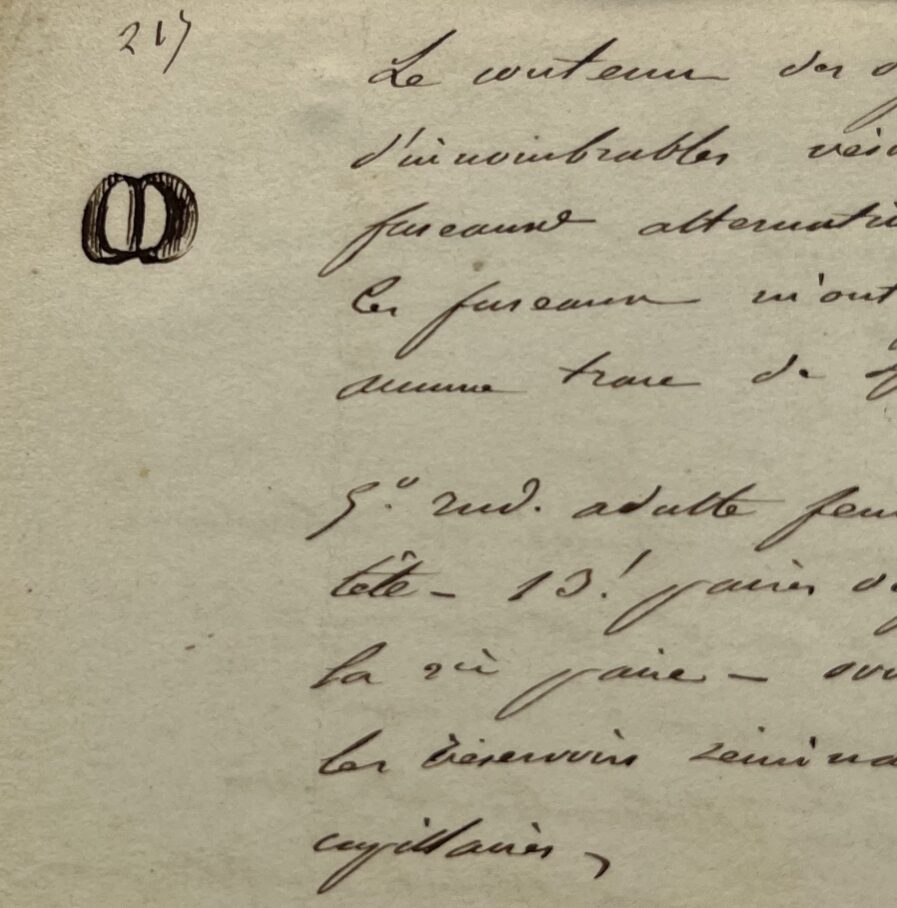 217
Le contenu des
d'innombrables
fuseaux alternati
Ces fuseaux m'ont
aucune trace de
5º ind. adulte fem
tête - 13! paires de
la 2è paire - ov
les réservoirs sémina
capillaires,